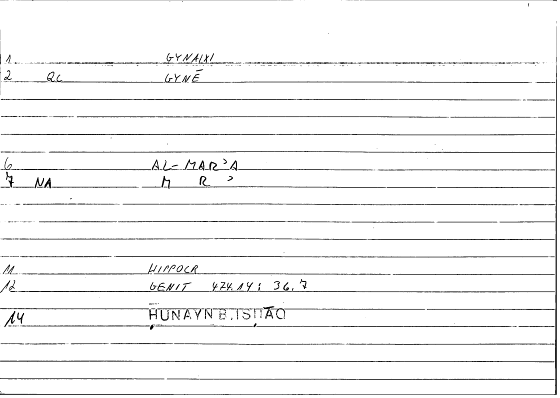 1 GYNAIXI
2 QC GYNĒ
6 AL-MAR'A
7 NA M R '
11 HIPPOCR
12 GENIT 474.14; 36.7
14 ḤUNAYN B. ISḤĀQ